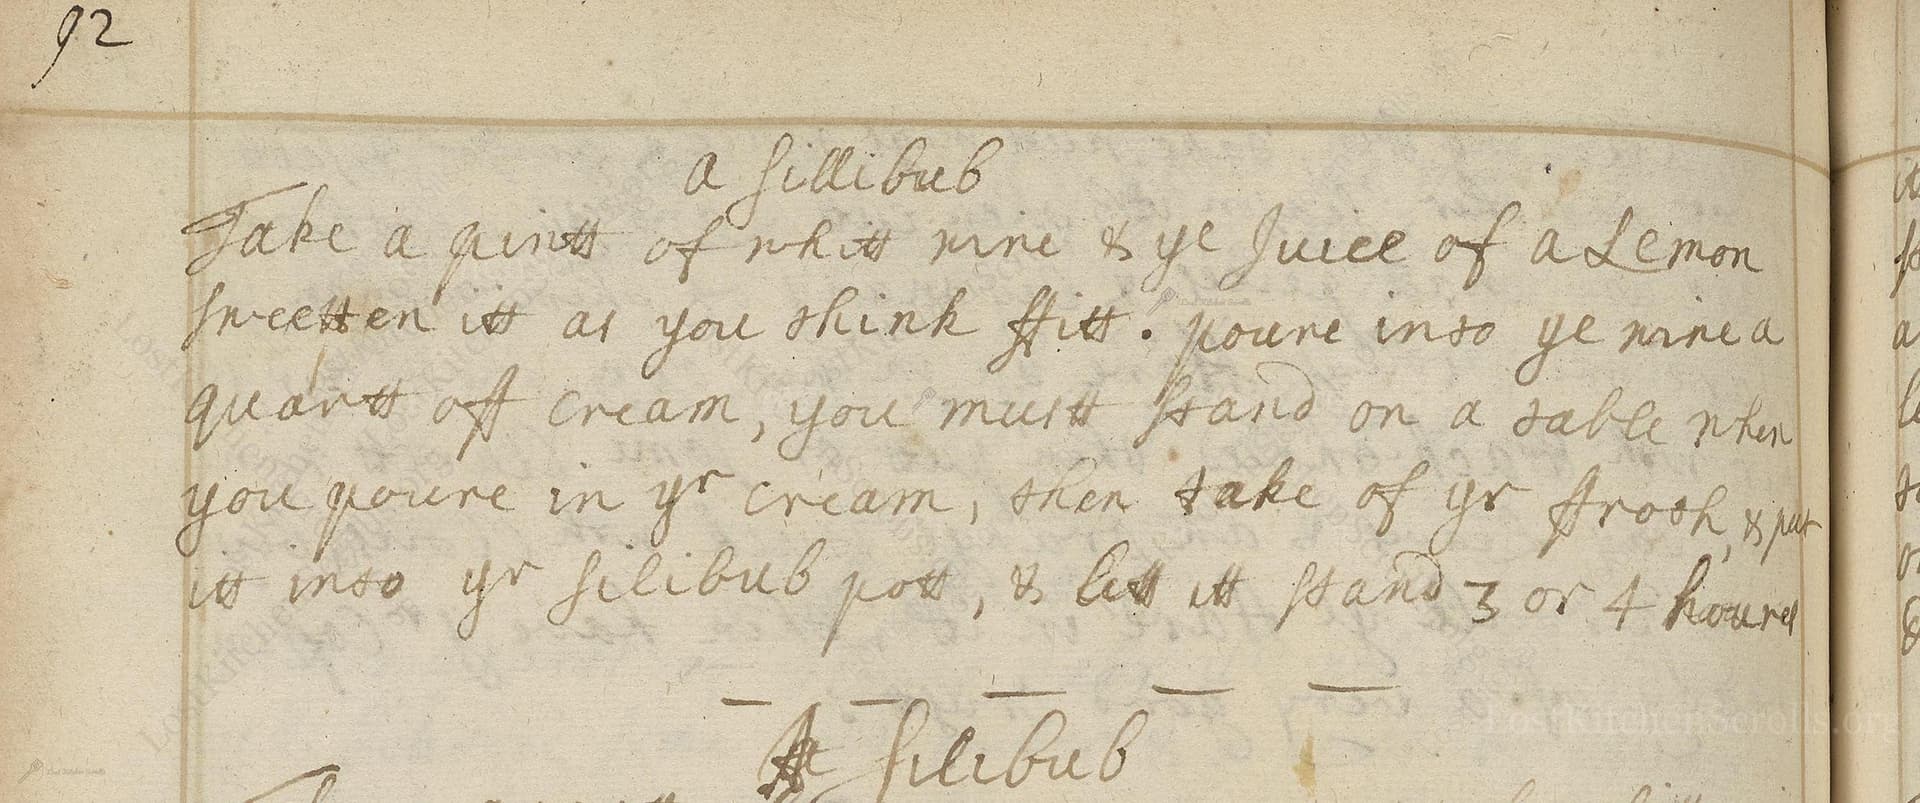 92
a sillibub
Take a pintt of whitt wine & ye Juice of a Lemon
sweetten itt as you think ffitt. poure into ye wine a
quartt off cream, you mustt stand on a table when
you poure in yr cream, then take of yr ffroth, & put
itt into yr silibub pott, & lett itt stand 3 or 4 houres
A silibub
LostKitchenScrolls.org